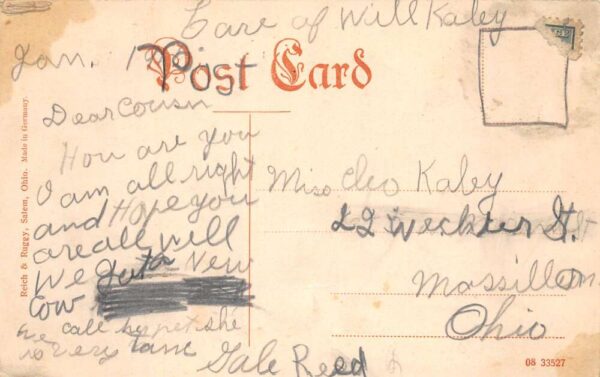 Care of Will Kaley
Jan. 19
Post Card
Dear Cousin
How are you
I am all right
and Hope you
are all will
We New
Cow
call her pet she
is very tame
Gale Reed
Miss Cleo Kaley
22 St.
Massillon
Ohio
Reich & Ruggy, Salem, Ohio. Made in Germany.
08 33527